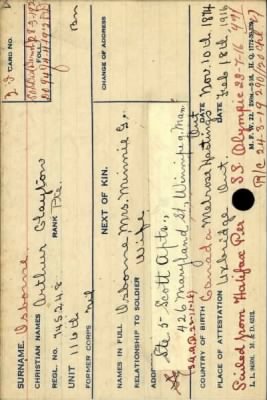 SURNAME. Osborne
CHRISTIAN NAMES Arthur Clayton
REGL. No. 745248 RANK Pte.
UNIT 116th Bn
FORMER CORPS Nil
CARD NO.
FOLL.
NEXT OF KIN.
CHANGE OF ADDRESS
NAMES IN FULL Osborne Mrs. Minnie G.,
RELATIONSHIP TO SOLDIER Wife
ADDRESS Ste 5 - Scott Apts.,
426 Maryland St, Winnipeg, Man.
COUNTRY OF BIRTH Canada Melrose, Hastings Ont DATE Nov. 10th 1874
PLACE OF ATTESTATION Uxbridge Ont. DATE Feb 18th 1916
Sailed from Halifax Per SS Olympic 23-7-16
L. L. 2D&D
M. F. W. 22.
R/C 24-3-19